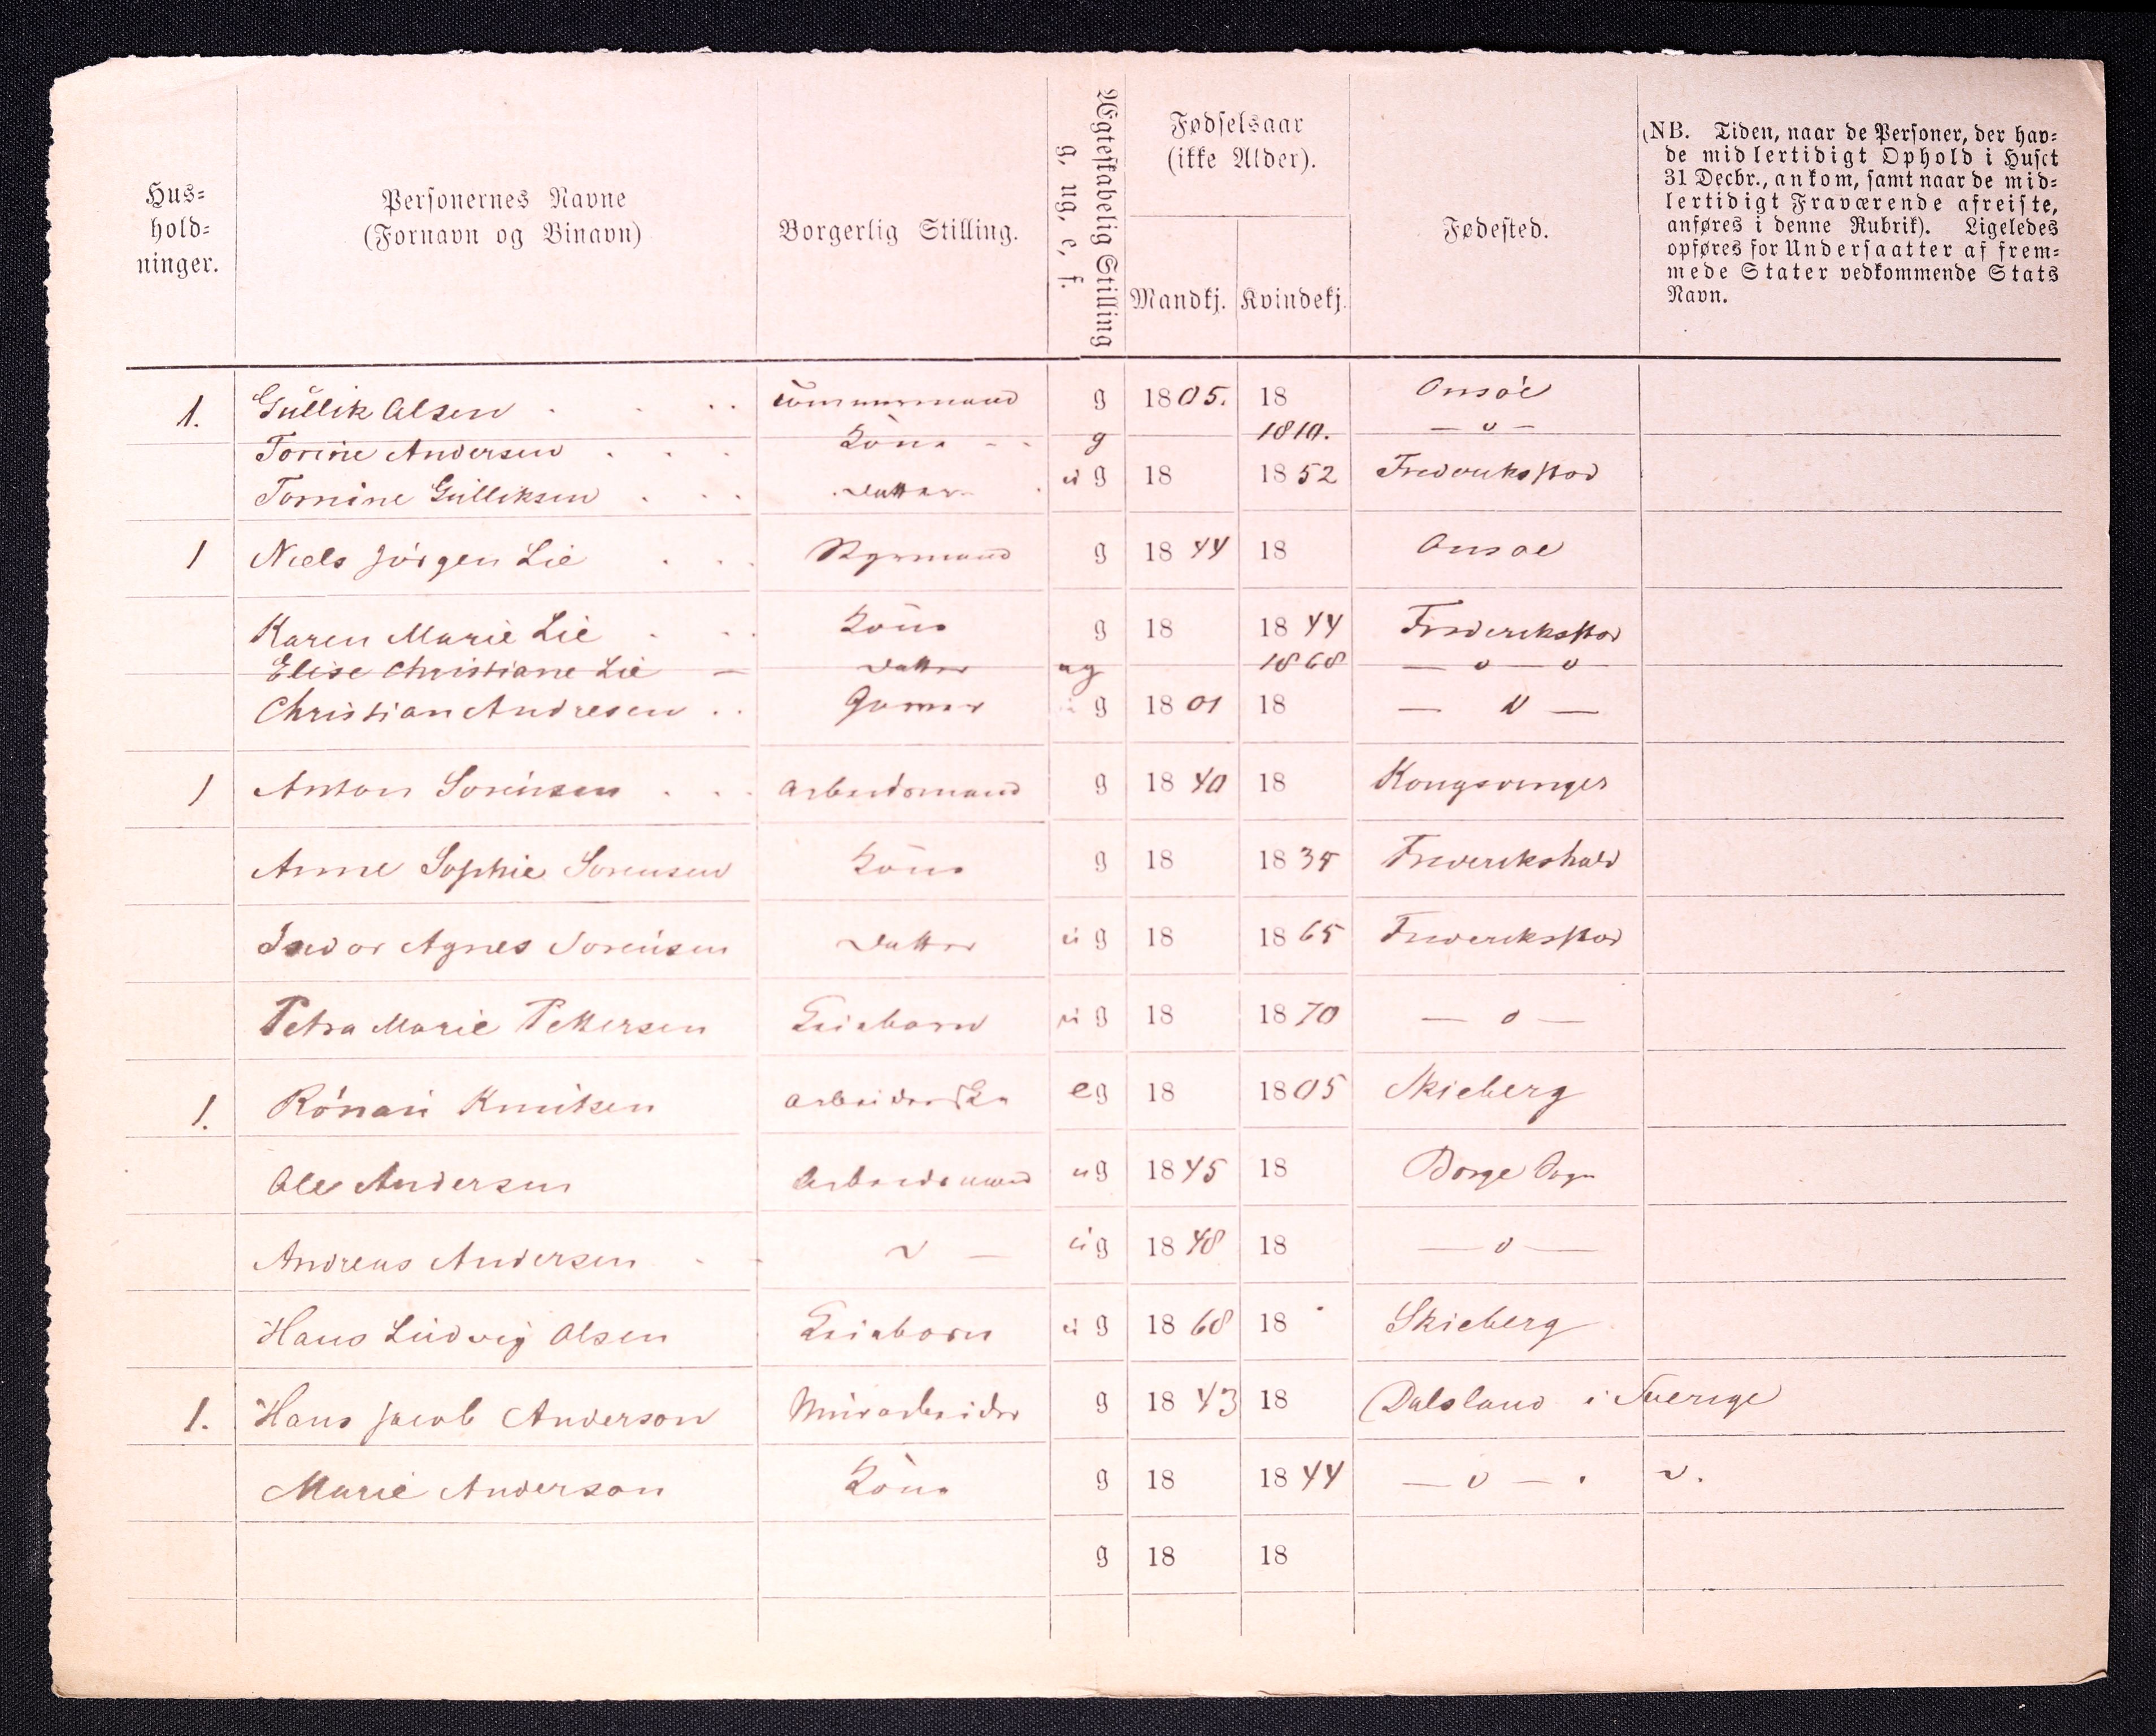 Hus-
hold-
ninger.
Personernes Navne
(Fornavn og Binavn)
Borgerlig Stilling.
Ægteskabelig Stilling
g, ug, e, f.
Fødselsaar
(ikke Alder).
Mandkj. Kvindekj.
Fødested.
(NB. Tiden, naar de Personer, der hav-
de midlertidigt Ophold i Huset
31 Decbr., ankom, samt naar de mid-
lertidigt Fraværende afreiste,
anføres i denne Rubrik). Ligeledes
opføres for Undersaatter af frem-
mede Stater vedkommende Stats
Navn.
1. Gullik Olsen Tømmermand g 1805. 18 Onsøe
Torine Andersen Kone g 1810. — " —
Tomine Gulliksen Datter ug 18 1852 Frederikstad
1 Niels Jørgen Lie Styrmand g 1844 18 Onsøe
Karen Marie Lie Kone g 18 1844 Frederikstad
Elise Christiane Lie — Datter ug 1868 — " — "
Christian Andresen g 1801 18 — " —
1 Anton Sorensen Arbeidsmand g 1840 18 Kongsvinger
Anne Sophie Sorensen Kone g 18 1835 Frederikshald
Agnes Sorensen Datter ug 18 1865 Frederikstad
Petra Marie Pettersen ug 18 1870 — " —
1. Knutsen eg 18 1805 Skieberg
Ole Andersen Arbeidsmand ug 1845 18 Borge Sogn
Andreas Andersen " — ug 1848 18 — " —
Hans Ludvig Olsen ug 1868 18 Skieberg
1. Hans Jacob Anderson Murarbeider g 1843 18 Dalsland i Sverige
Marie Anderson Kone g 18 1844 — " — ".
g 18 18